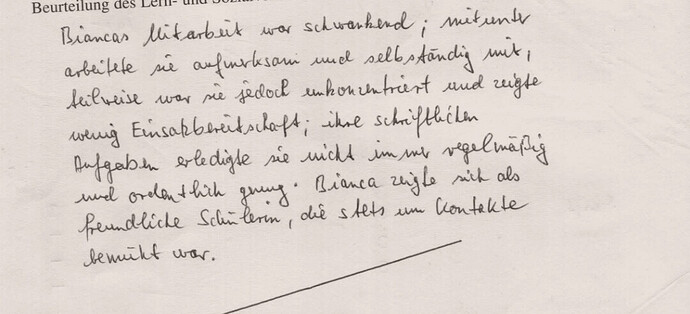 Beurteilung des Lern- und Sozial
Biancas Mitarbeit war schwankend; mitunter
arbeitete sie aufmerksam und selbständig mit,
teilweise war sie jedoch unkonzentriert und zeigte
wenig Einsatzbereitschaft; ihre schriftlichen
Aufgaben erledigte sie nicht immer regelmäßig
und ordentlich genug. Bianca zeigte sich als
freundliche Schülerin, die stets um Kontakte
bemüht war.